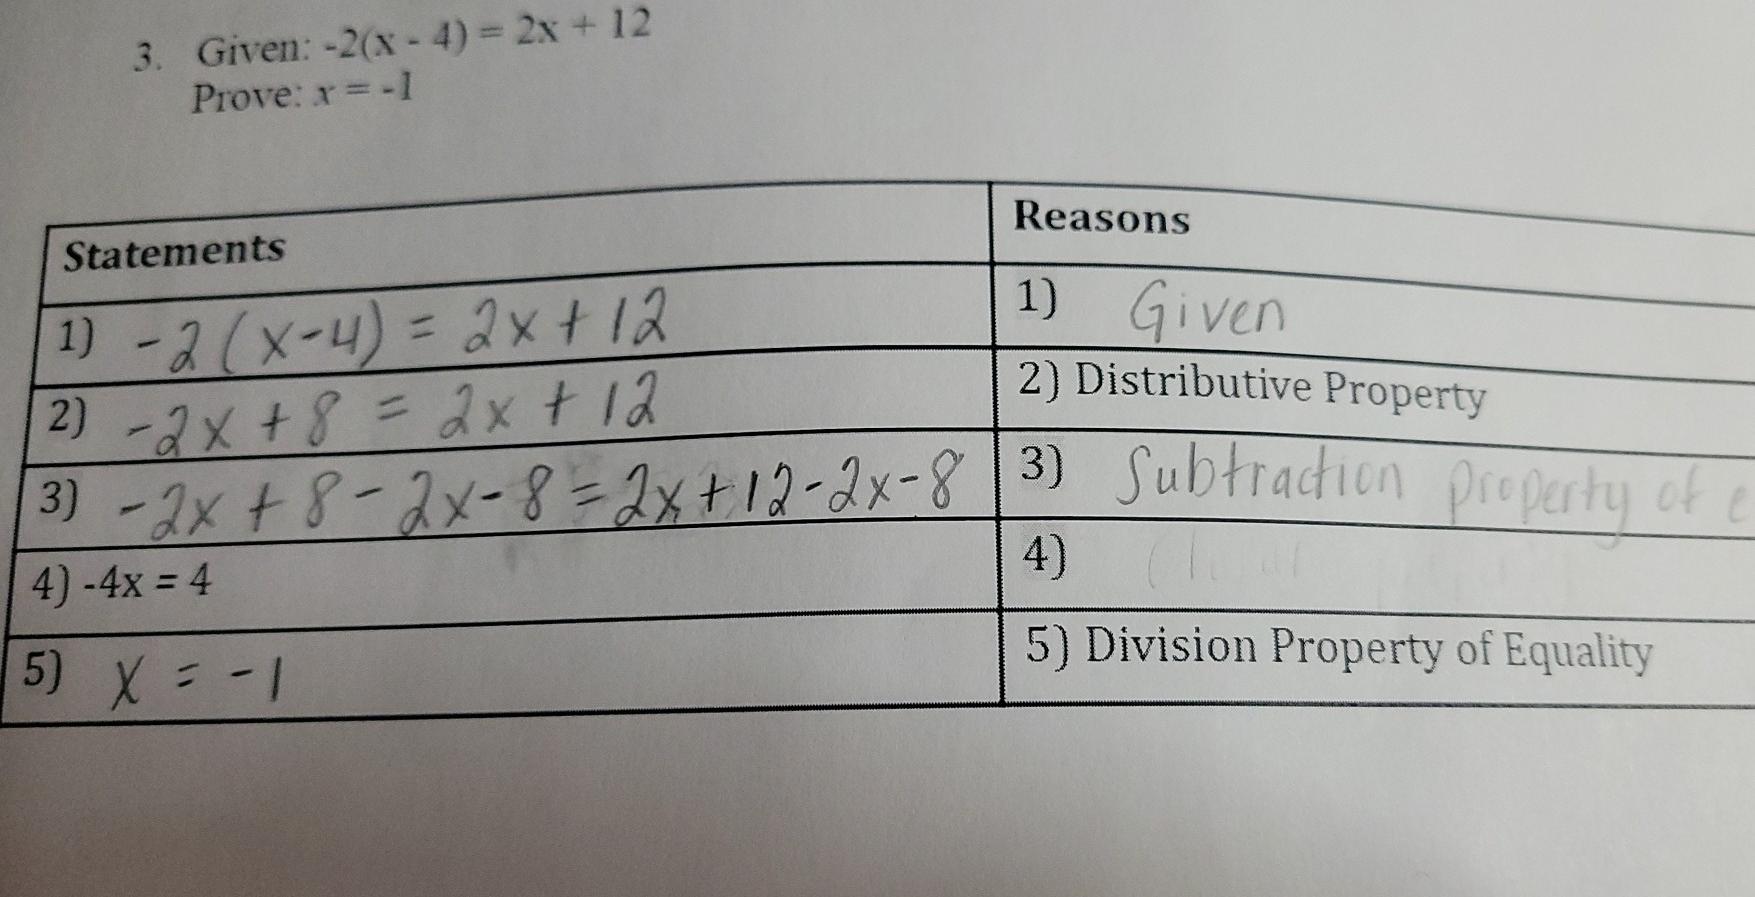 3. Given: -2(x - 4) = 2x + 12
Prove: x = -1
Statements
Reasons
1) -2(x-4) = 2x+12
1) Given
2) -2x+8 = 2x+12
2) Distributive Property
3) -2x+8-2x-8=2x+12-2x-8
3) Subtraction property of e
4) -4x = 4
4)
5) x = -1
5) Division Property of Equality